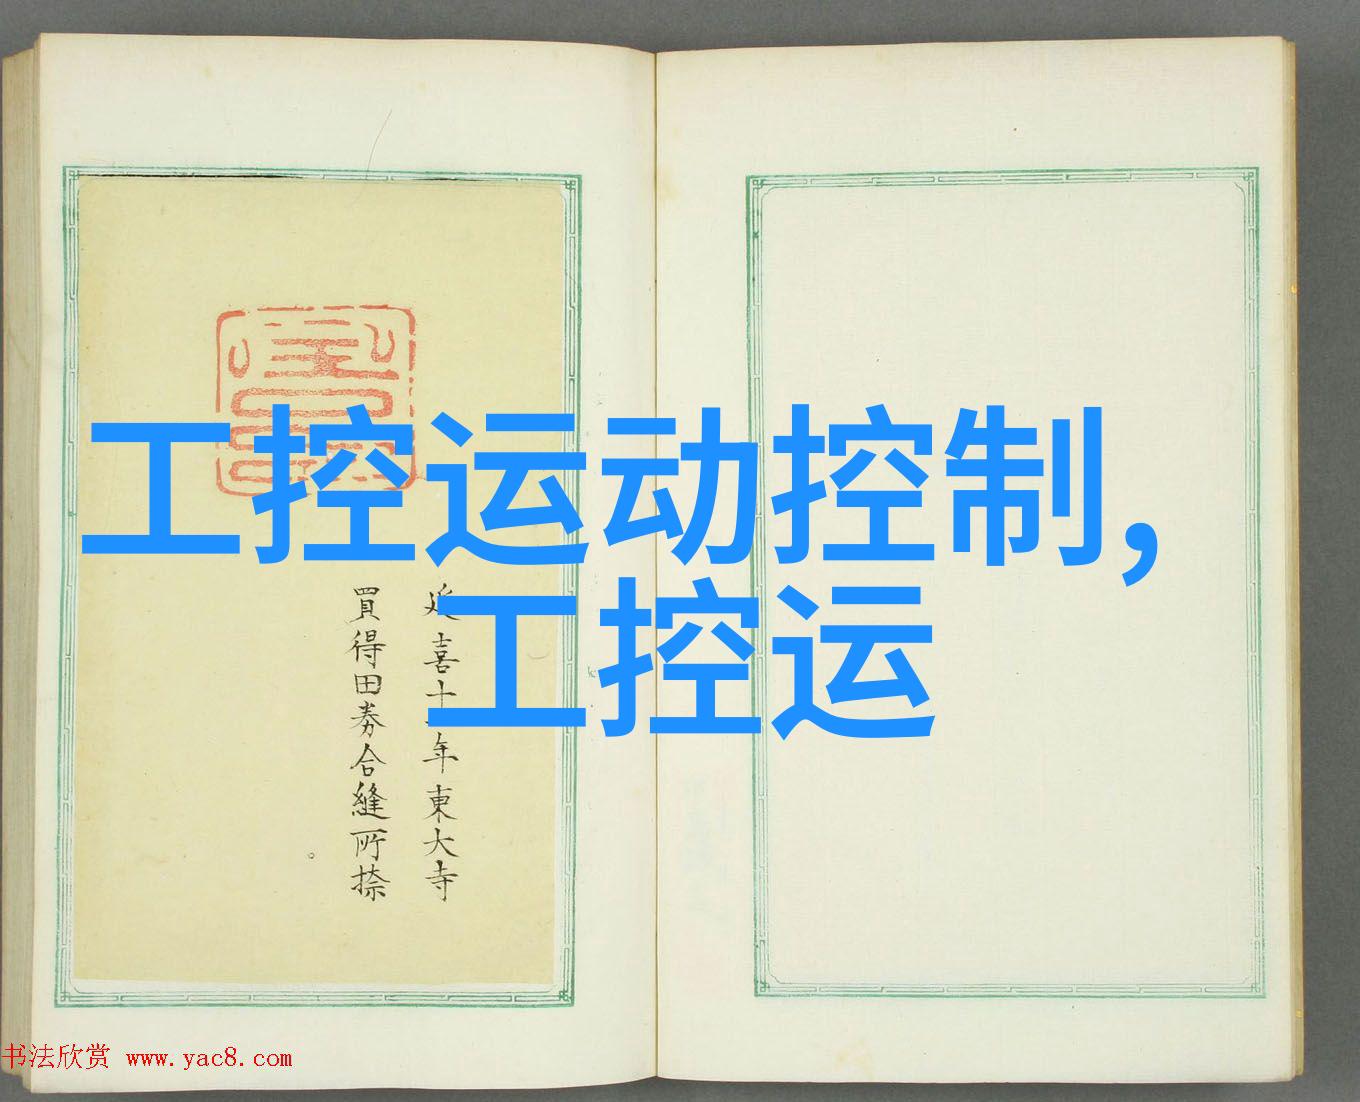 工控运动控制,
工控运
延喜十一年東大寺
買得田券合縫所捺
书法欣赏 www.yac8.com